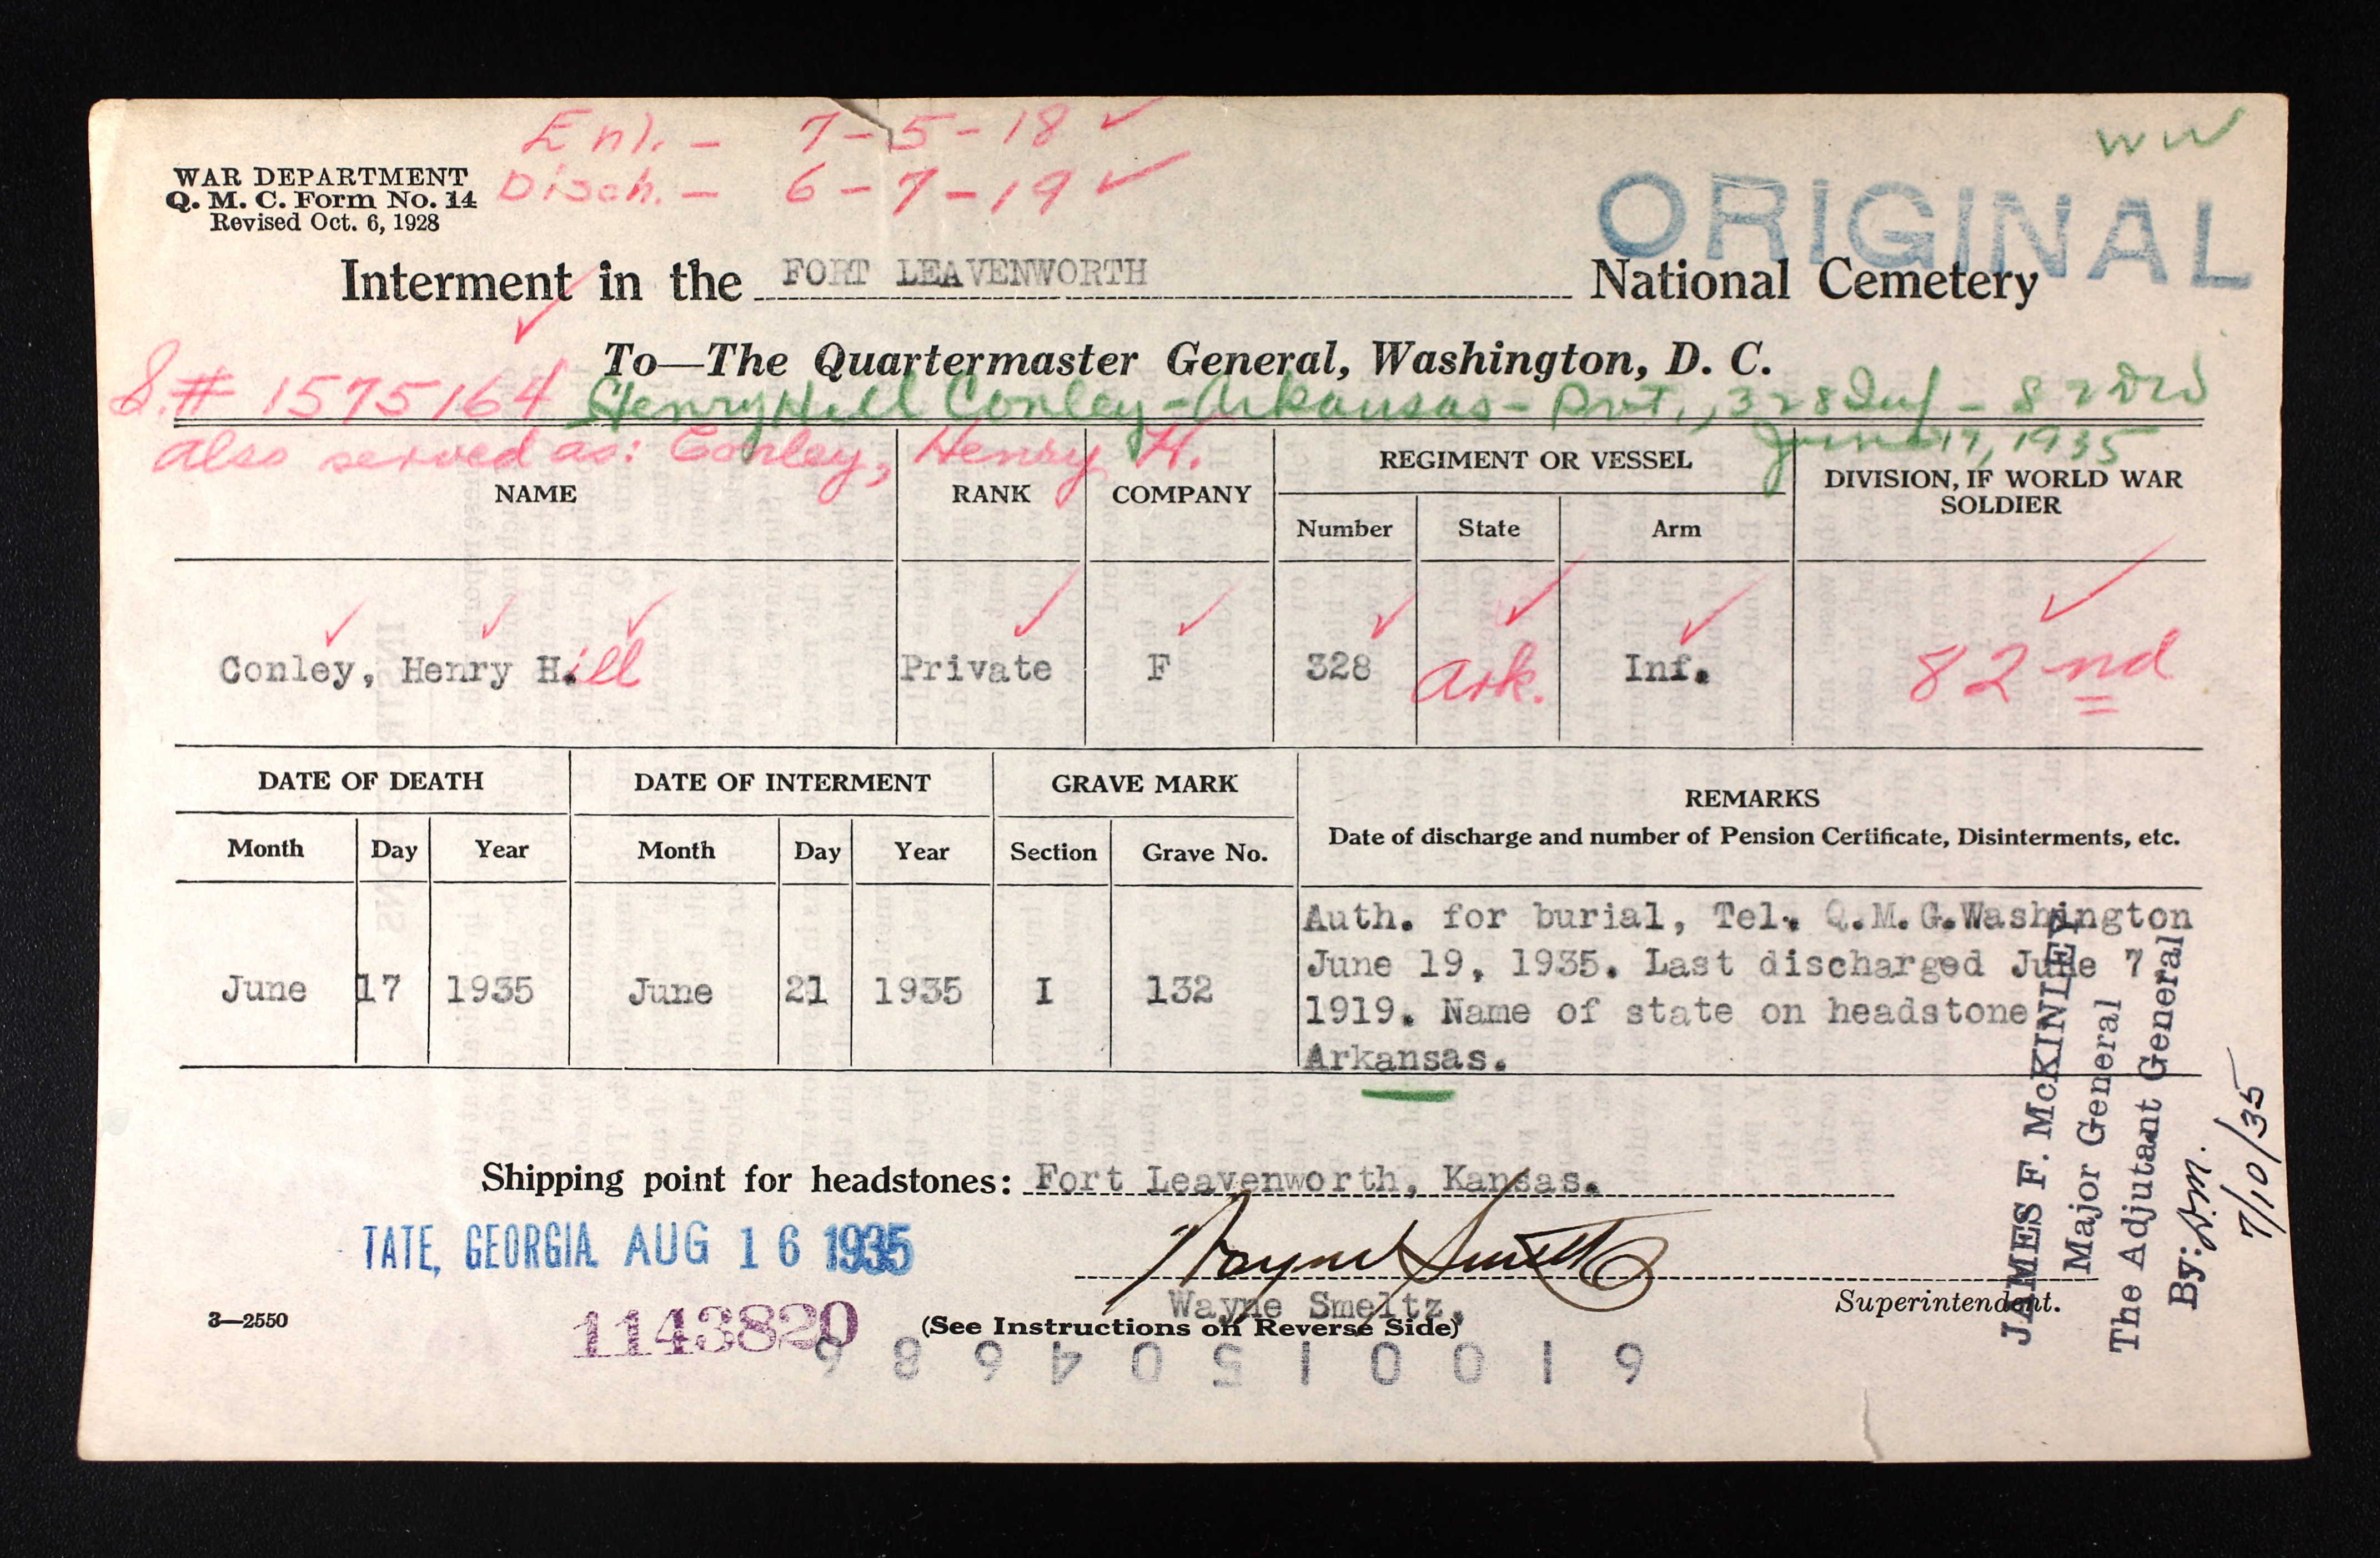 Enl. - 7-5-18 ✓
Disch. - 6-7-19 ✓
WW
WAR DEPARTMENT
Q. M. C. Form No. 14
Revised Oct. 6, 1928
ORIGINAL
Interment in the FORT LEAVENWORTH National Cemetery
To—The Quartermaster General, Washington, D. C.
S.# 1575164 Henry Hill Conley - Arkansas - Pvt., 328 Inf - 82 Div
June 17, 1935
also served as: Conley, Henry H.
NAME RANK COMPANY REGIMENT OR VESSEL DIVISION, IF WORLD WAR SOLDIER
Number State Arm
Conley, Henry H.ill Private F 328 Ark. Inf. 82nd
DATE OF DEATH DATE OF INTERMENT GRAVE MARK REMARKS
Date of discharge and number of Pension Certificate, Disinterments, etc.
Month Day Year Month Day Year Section Grave No.
June 17 1935 June 21 1935 I 132
Auth. for burial, Tel. Q.M.G.Washington
June 19, 1935. Last discharged June 7
1919. Name of state on headstone
Arkansas.
Shipping point for headstones: Fort Leavenworth, Kansas.
TATE, GEORGIA. AUG 16 1935
Wayne Smeltz
Wayne Smeltz,
Superintendent.
3—2550
1143820
(See Instructions on Reverse Side)
JAMES F. McKINLEY
Major General
The Adjutant General
By: D.M.
7/10/35